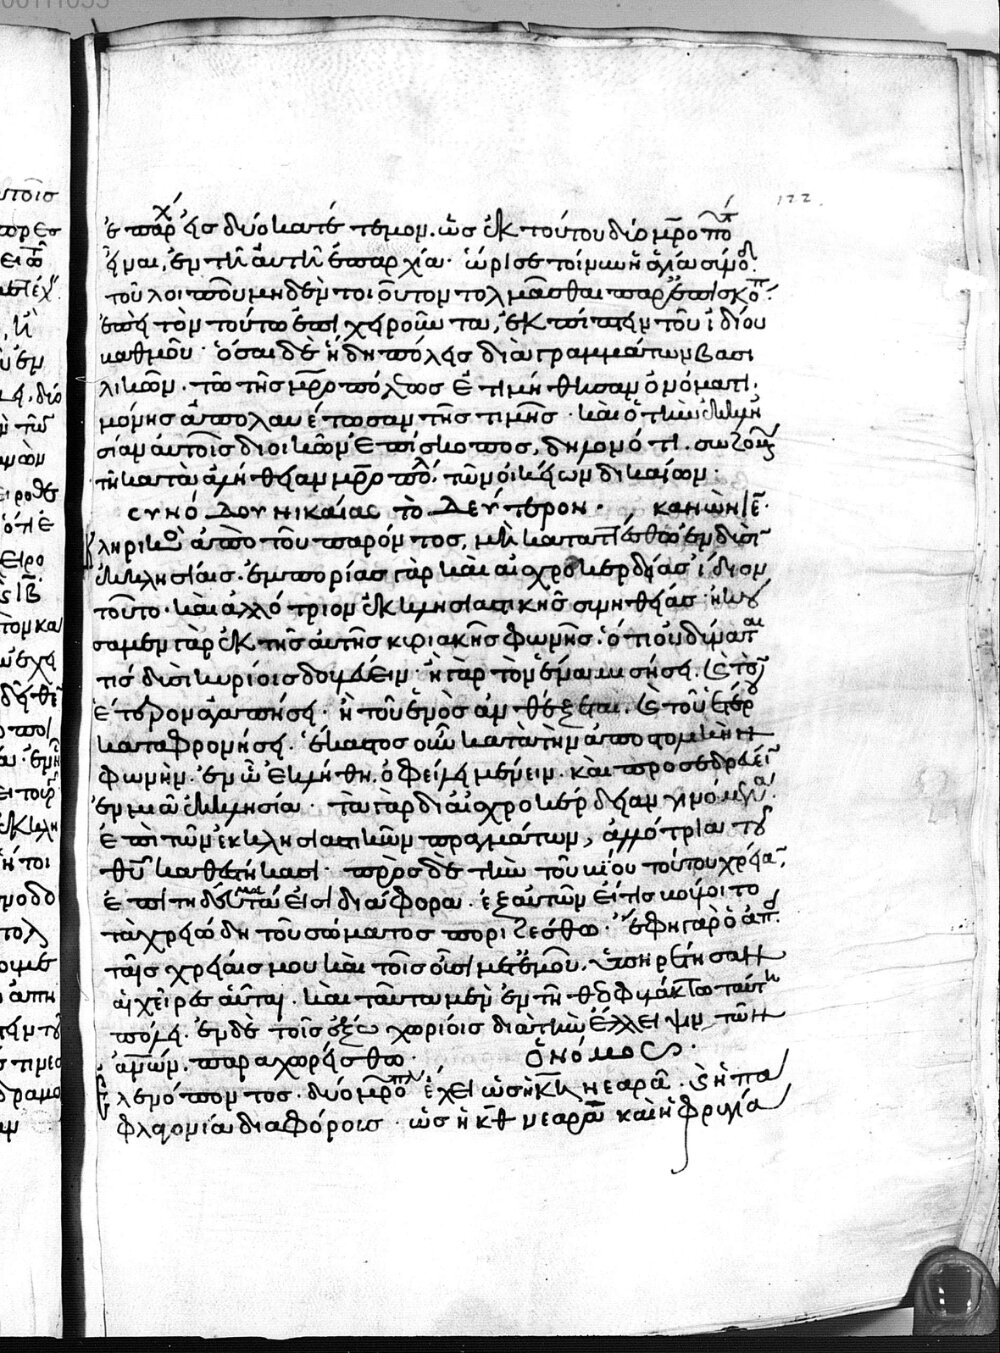 ἐπαρχίας δύο κατέτεμον. ὡς ἐκ τούτου δύο μητροπο
εἶναι ἐν τῆ αὐτῆ ἐπαρχία. ὥρισε τοίνυν ἡ ἁγία σύνοδ
τοῦ λοιποῦ μηδὲν τοιοῦτον τολμᾶσθαι παρ' ἐπισκόπ
ἐπεὶ τὸν τούτω ἐπιχειροῦντα, ἐκπίπτειν τοῦ ἰδίου
βαθμοῦ. ὅσαι δὲ ἤδη πόλεις διὰ γραμμάτων βασι
λικῶν. τῶ τῆς μητροπόλεως ἐτιμήθησαν ὀνόματι.
μόνης ἀπολαυέτωσαν τῆς τιμῆς. καὶ ὁ τὴν ἐκκλη
σίαν αὐτοῖς διοικῶν ἐπίσκοπος, δηλονότι σωζομ
τῆ κατὰ ἀλήθειαν μητροπόλ. τῶν οἰκείων δικαίων.
συνόδου νικαίας τὸ δεύτερον. κανὼν ιε.
κληρικὸ ἀπὸ τοῦ παρόντος, μὴ καταταττέσθω ἐν δυσὶ
ἐκκλησίαις. ἐμπορίας γὰρ καὶ αἰσχροκερδείας ἴδιον
τοῦτο. καὶ ἀλλότριον ἐκκλησιαστικῆς συνηθείας. ἠκού
σαμεν γὰρ ἐκ τῆς αὐτῆς κυριακῆς φωνῆς. ὅτι οὐ δύναται
τίς δυσὶ κυρίοις δουλεύειν. ἢ γὰρ τὸν ἕνα μισήσει. καὶ τὸ
ἕτερον ἀγαπήσει. ἢ τοῦ ἑνὸς ἀνθέξεται. καὶ τοῦ ἑτέρ
καταφρονήσει. ἕκαστος οὖν κατὰ τὴν ἀποστολικὴν
φωνὴν. ἐν ὧ ἐκλήθη. ὀφείλει μένειν. καὶ προσεδρεύει
ἐν μιᾶ ἐκκλησία. τὰ γὰρ δι' αἰσχροκέρδειαν γινόμενα
ἐπὶ τῶν ἐκκλησιαστικῶν πραγμάτων, ἀλλότρια τοῦ
θεοῦ καθεστήκασι. πρὸς δὲ τὴν τοῦ βίου τούτου χρεία
ἐπιτηδεύματά εἰσι διάφορα. ἐξ αὐτῶν εἴ τις βούλοιτο
τὰ χρειώδη τοῦ σώματος ποριζέσθω. ἔφη γὰρ ὁ ἀπ
ταῖς χρείαις μου καὶ τοῖς οὖσι μετ' ἐμοῦ. ὑπηρέτησαν
αἱ χεῖρες αὗται. καὶ ταῦτα μὲν ἐν τῆ θεοφυλάκτω ταύτη
πόλει. ἐν δὲ τοῖς ἔξω χωρίοις διὰ τὴν ἔλλειψιν τῶν
ἀνων. παραχωρείσθω. ὁ νόμος.
ἑλενόποντος. δύο μητροπόλ ἔχει ὡς ἡ κη νεαρὰ. καὶ ἡ πα
φλαγονία διαφόρους. ὡς ἡ κθ νεαρὰ καὶ ἡ φρυγία